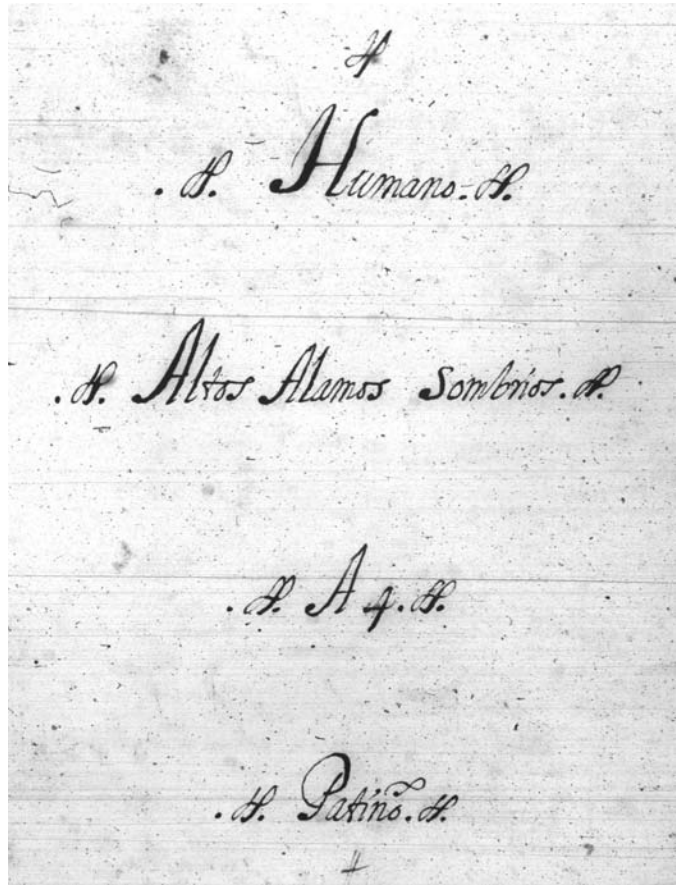 Humano.
Altos Alamos Sombrios.
A 4.
Patiño.